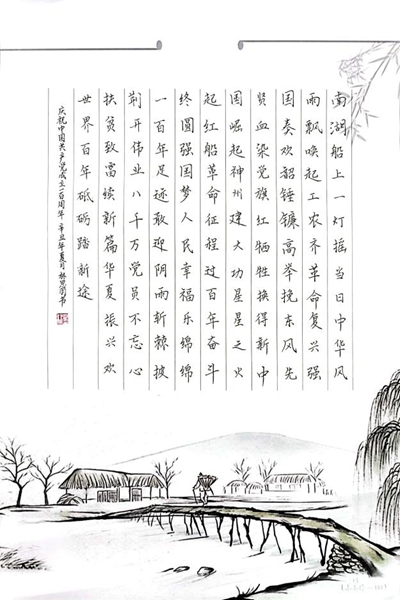 南湖船上一灯摇当日中华风
雨飘唤起工农齐革命复兴强
国奏欢韶锤镰高举挽东风先
贤血染党旗红牺牲换得新中
国崛起神州建大功星星之火
起红船革命征程过百年奋斗
终圆强国梦人民幸福乐绵绵
一百年足迹敢迎阴雨斩棘披
荆开伟业八千万党员不忘心
扶贫致富续新篇华夏振兴欢
世界百年砥砺踏新途
庆祝中国共产党成立一百周年 辛丑年夏月 林思阳书